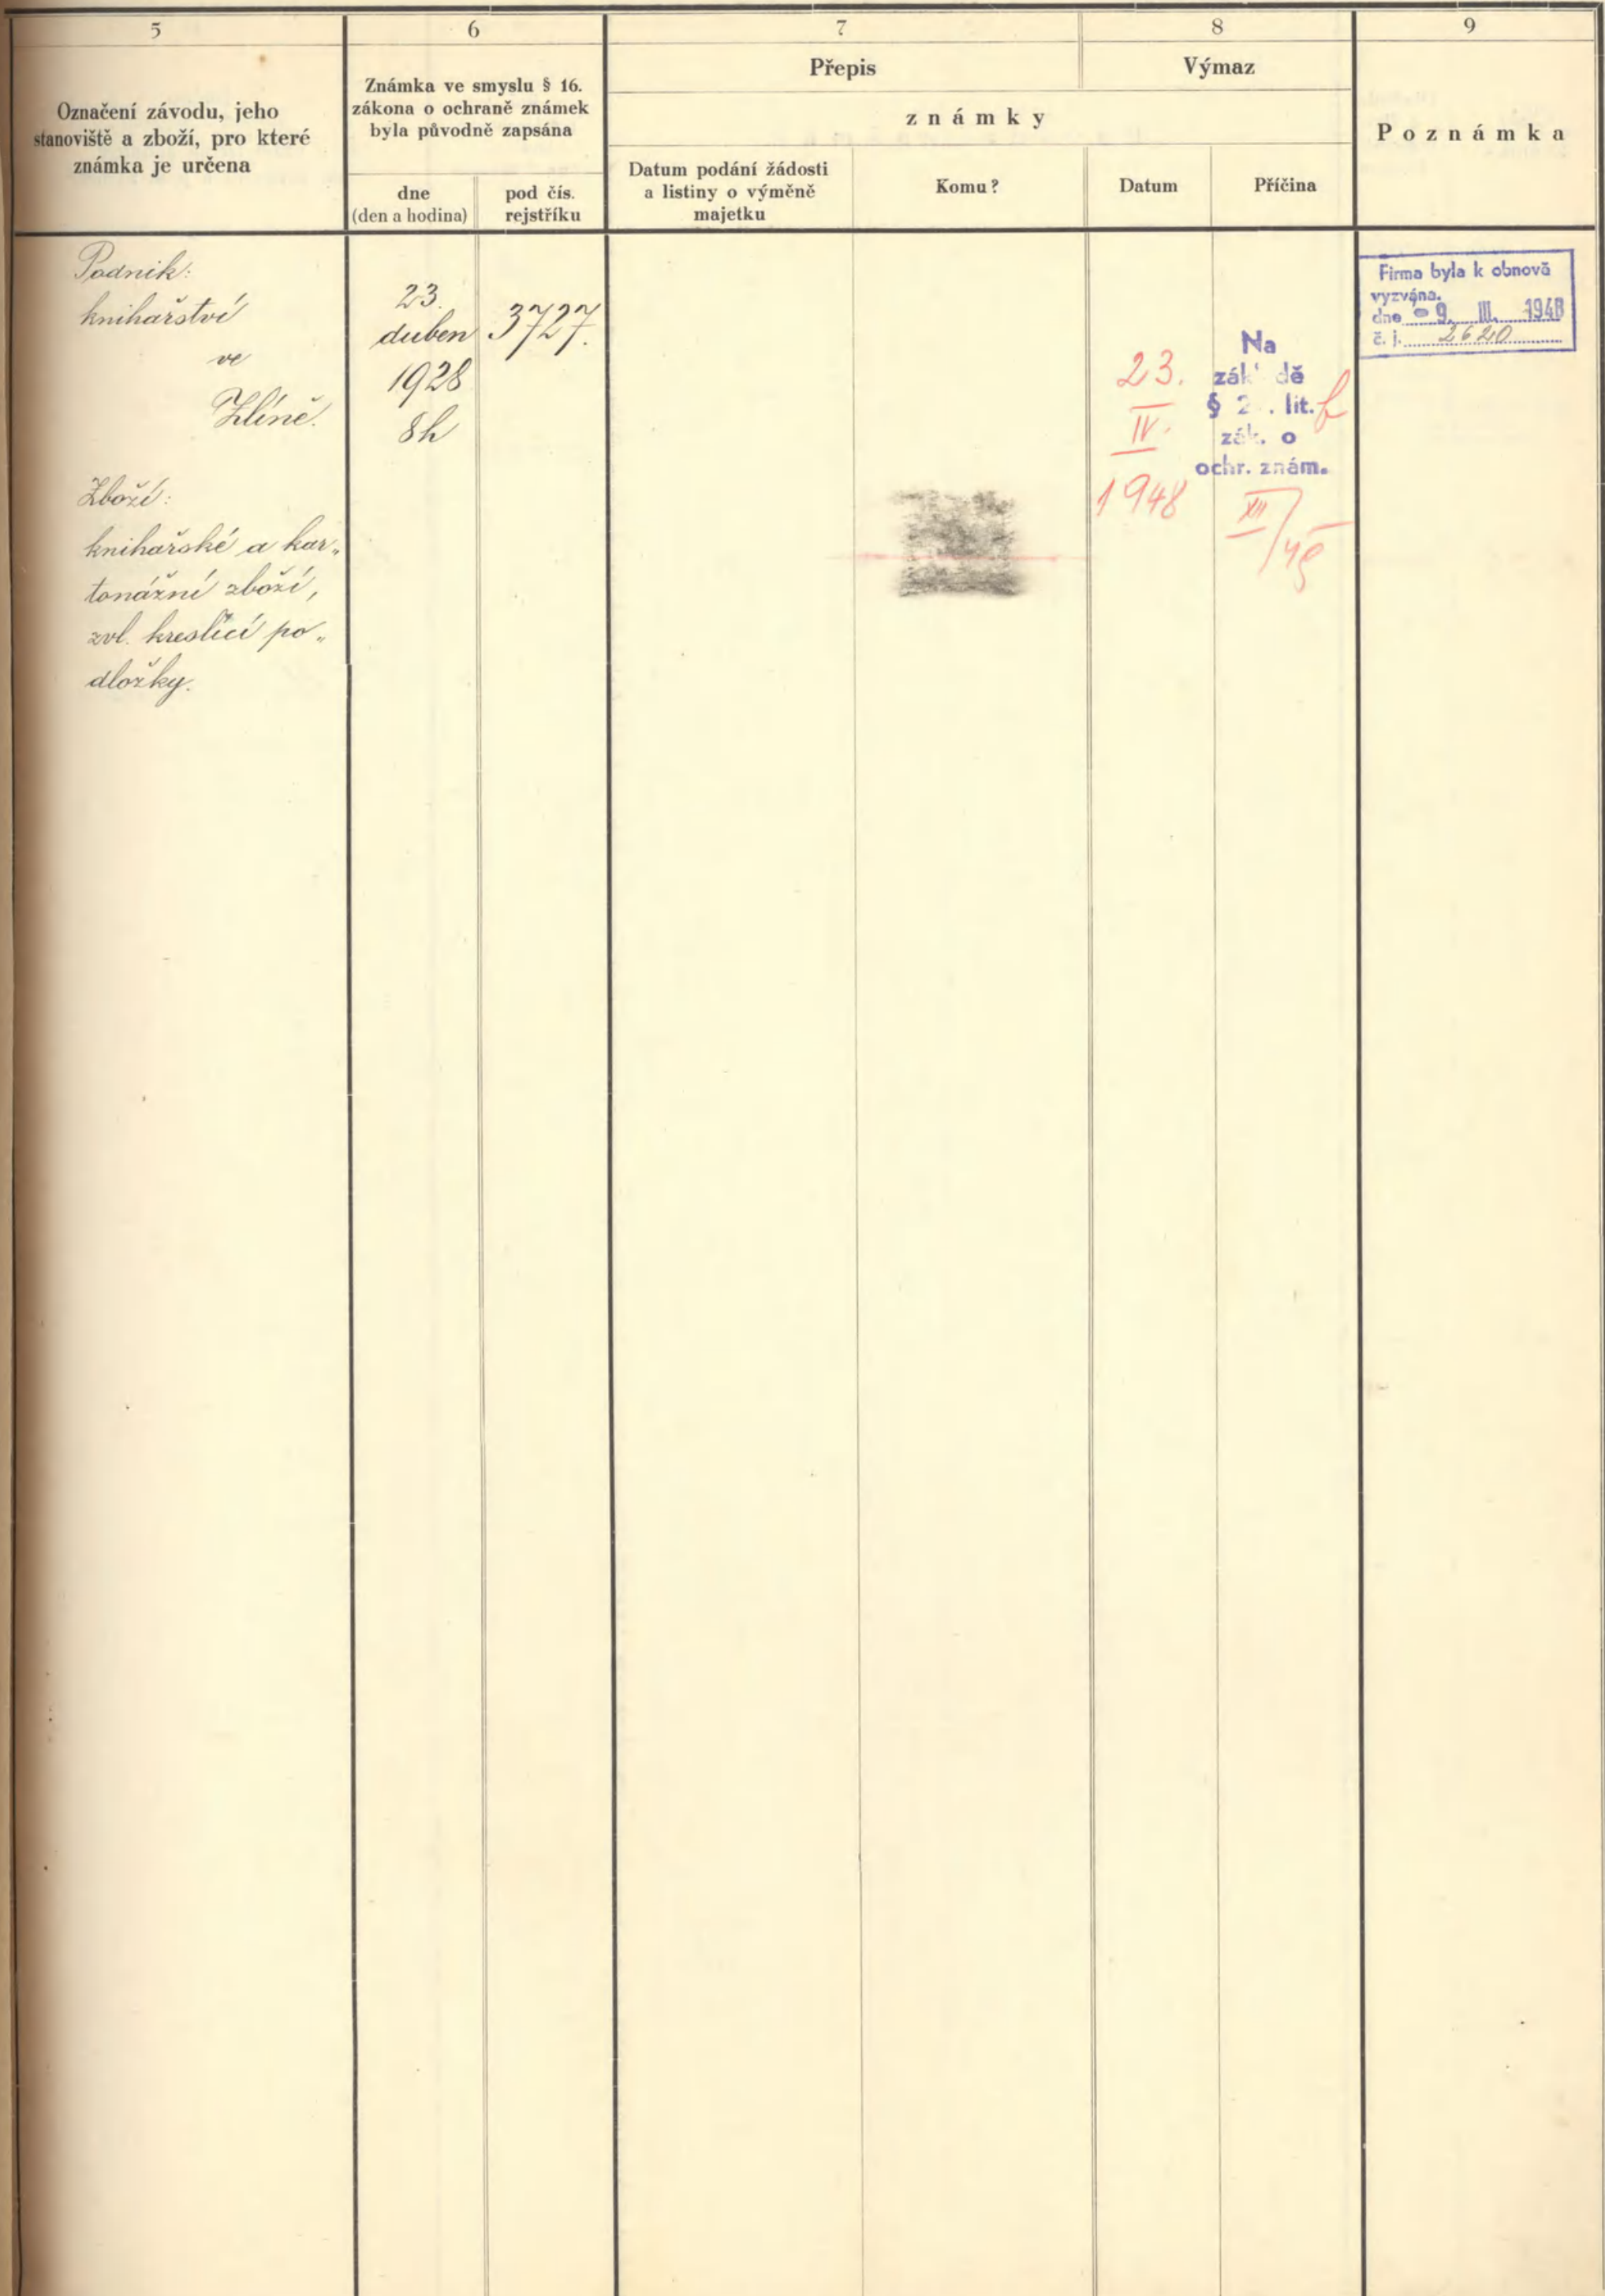 5
6
7
8
9
Označení závodu, jeho
stanoviště a zboží, pro které
známka je určena
Známka ve smyslu § 16.
zákona o ochraně známek
byla původně zapsána
dne
(den a hodina)
pod čís.
rejstříku
Přepis
Výmaz
známky
Datum podání žádosti
a listiny o výměně
majetku
Komu?
Datum
Příčina
Poznámka
Podnik:
knihařství
ve
Zlíně.
Zboží:
knihařské a kar„
tonážní zboží,
zvl. kreslící po„
dložky.
23.
duben
1928
8h
3727.
23.
IV.
1948
Na
zákl dě
§ 2 . lit.
zák. o
ochr. znám.
XII
Firma byla k obnově
vyzvána.
dne - 9. III. 1948
č. j. 2620